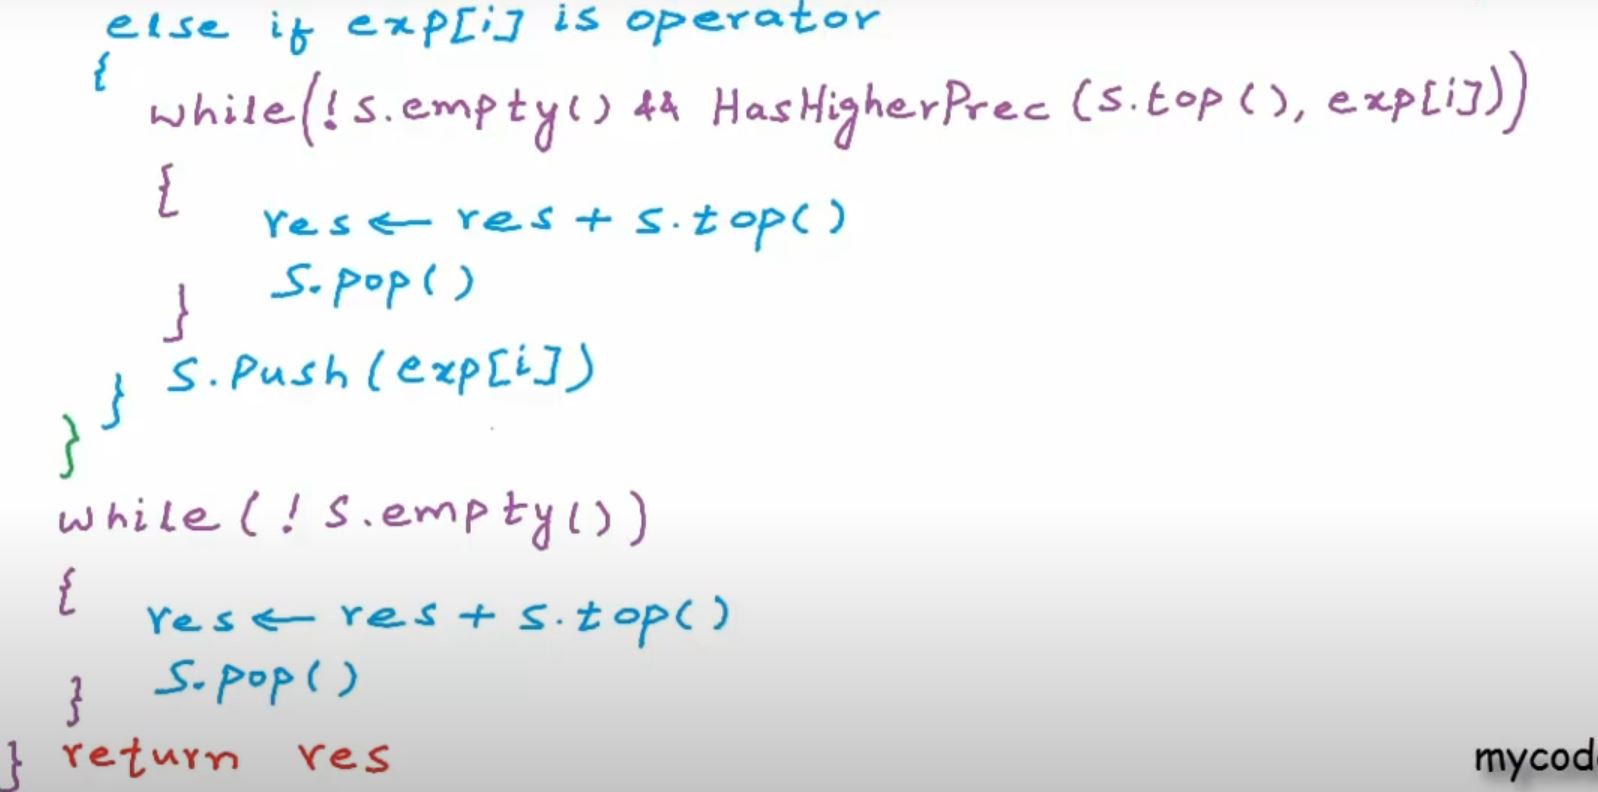 else if exp[i] is operator
{
while(!s.empty() && HasHigherPrec(s.top(), exp[i]))
{
res ← res + s.top()
S.pop()
}
S.Push(exp[i])
}
}
while(!s.empty())
{
res ← res + s.top()
S.pop()
}
} return res
mycod